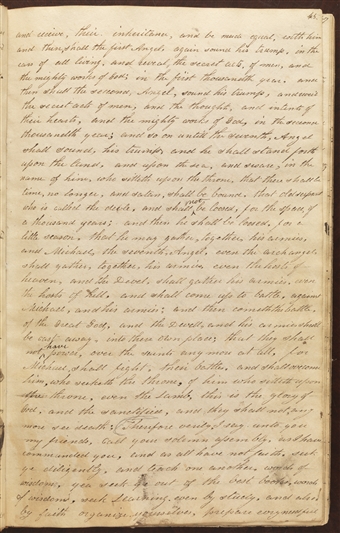 65
and receive, their inheritance, and be made equal, with him
and then, shall the first Angel, again sound his trump, in the
ears of all living; and reveal, the secret acts, of men, and
the mighty works of God; in the first thousandth year, and
then shall the second, Angel, sound his trump, & reveal
the secret acts of men, and the thoughts, and intents of
their hearts, and the mighty works of God, in the second
thousandth year; and so on untill the seventh, Angel
shall sound, his trump, and he shall stand forth
upon the Land, and upon the sea, and swear, in the
name of him, who sitteth upon the throne, that there shall be
time, no longer, and satan, shall be bound, that old serpent
who is called the devle, and shall not be loosed, for the space, of
a thousand years; and then he shall be loosed, for a
little season, that he may gather, together, his armies,
and Michael, the seventh, Angel, even the archangel,
shall gather, together, his armies even the hosts, of
heaven, and the Devel, shall gather his armies, even
the hosts of Hell, and shall come up to battle, against
Michael, and his armies; and then cometh the battle
of the Great God, and the Devell, and his armies, shall
be cast away, into their own place; that they shall
not, have power, over the saints any more at all, for
Micael, shall fight, their battle, and shall overcome
him, who seeketh the throne, of him who sitteth upon
the throne, even the Lamb, this is the glory, of
God, and the sanctified, and they shall not, any
more see death; Therefore verily, I say unto you
my friends, call your solemn assembly, as I have
commanded you, and as all have not faith, seek
ye dilligently, and teach one another, words of
wisdom, yea seek ye out of the best books, words
of wisdom, seek Learning, even by study, and also
by faith organize yourselves, prepare every needful